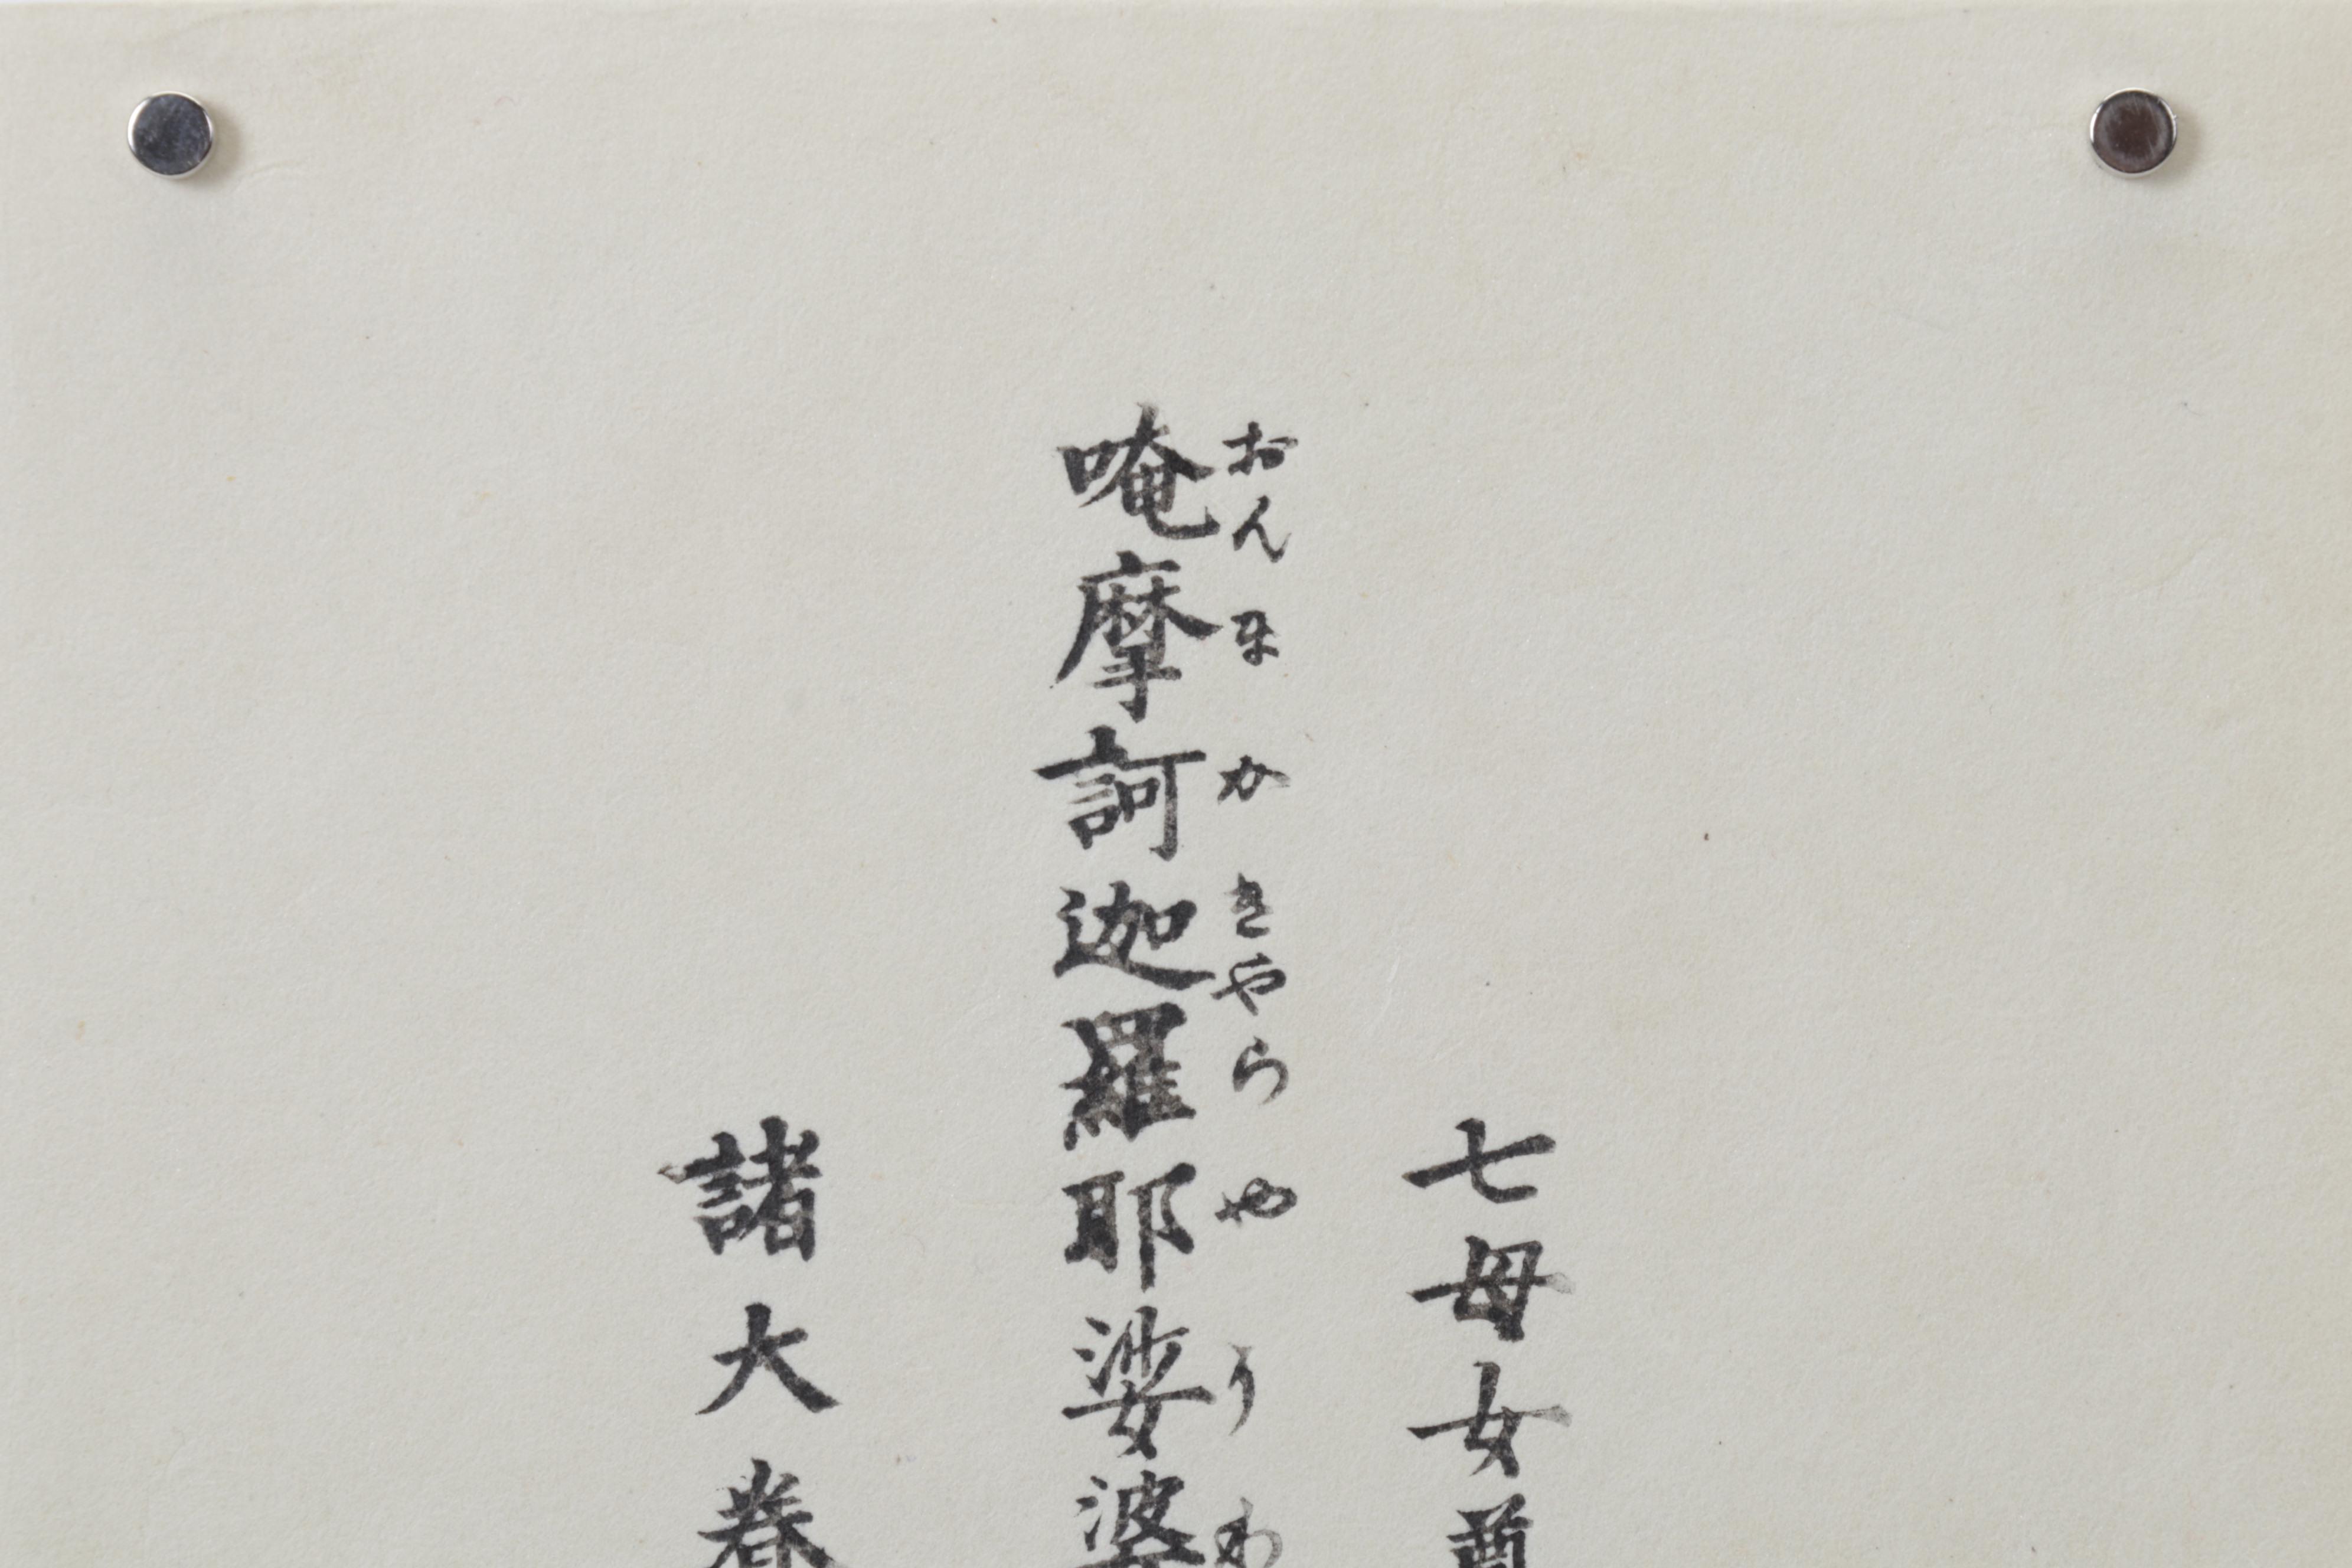 七母女尊
おんまかきやらやそわ
唵摩訶迦羅耶娑婆
諸大眷